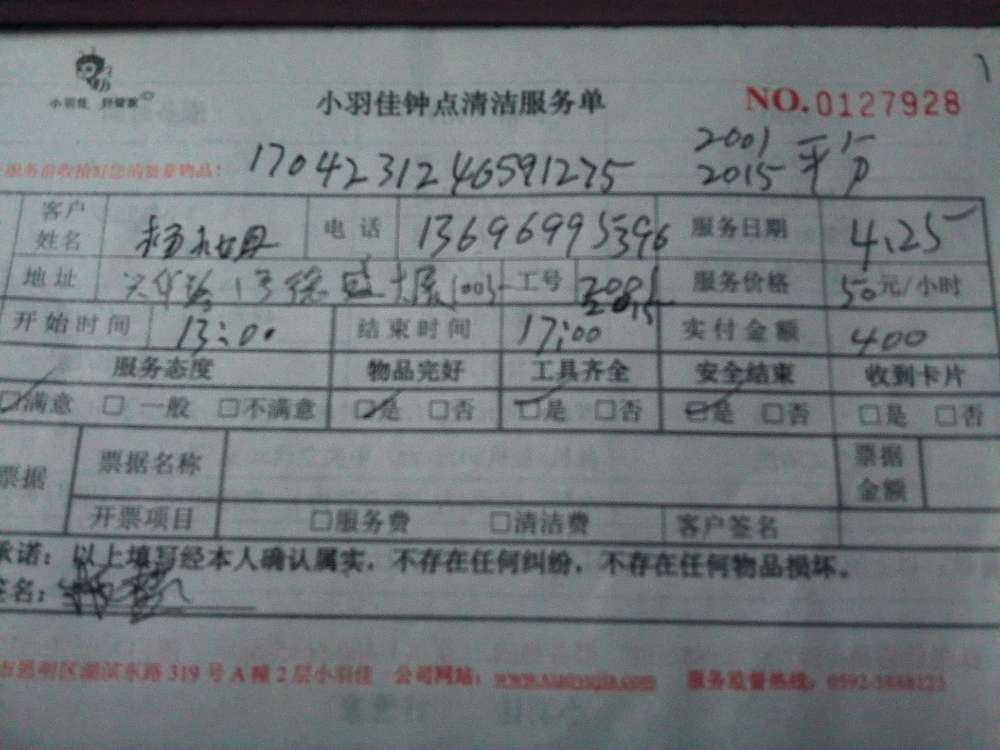 小羽佳 好管家
小羽佳钟点清洁服务单
NO.0127928
服务前收拾好您的贵重物品:
1704231246591275
2001
2015
客户姓名 电话 13696995396 服务日期 4.25
地址 1号 盛大厦1005 工号 服务价格 50元/小时
开始时间 13:00 结束时间 17:00 实付金额 400
服务态度 物品完好 工具齐全 安全结束 收到卡片
☑满意 □一般 □不满意 ☑是 □否 ☑是 □否 ☑是 □否 □是 □否
票据 票据名称 票据金额
开票项目 □服务费 □清洁费 客户签名
承诺:以上填写经本人确认属实,不存在任何纠纷,不存在任何物品损坏。
签名:
市思明区湖滨东路319号A幢2层小羽佳 公司网站: www.xiaoyujia.com 服务监督热线: